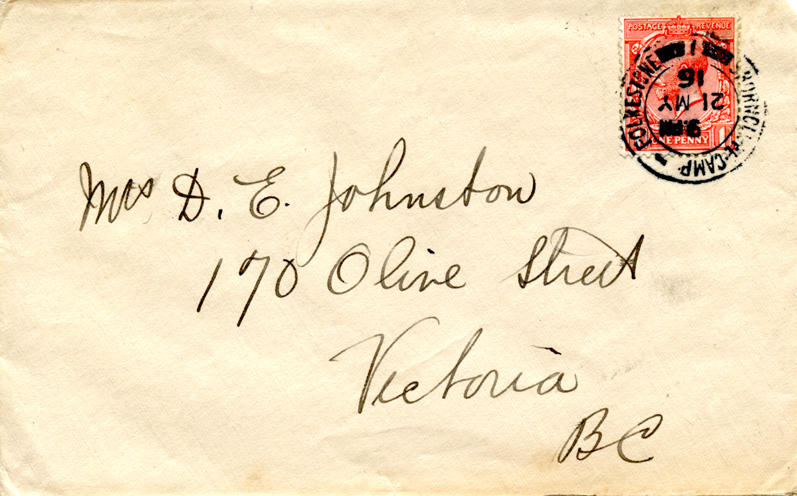 POSTAGE REVENUE
FOLKESTONE
SHORNCLIFFE CAMP
9.PM
21 MY
16
ONE PENNY 1
Mrs D. E. Johnston
170 Olive Street
Victoria
BC